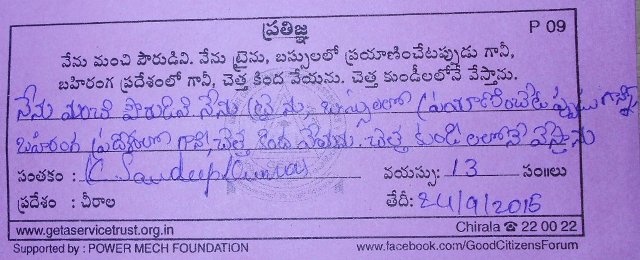 ప్రతిజ్ఞ P 09
నేను మంచి పౌరుడిని. నేను ట్రైను, బస్సులలో ప్రయాణించేటప్పుడు గానీ,
బహిరంగ ప్రదేశంలో గానీ, చెత్త కింద వేయను. చెత్త కుండీలలోనే వేస్తాను.
నేను మంచి పౌరుడిని నేను ట్రైను, బస్సులలో ప్రయాణించేటప్పుడు గానీ
బహిరంగ ప్రదేశంలో గానీ, చెత్త కింద వేయను. చెత్త కుండీలలోనే వేస్తాను
సంతకం : వయస్సు: 13 సం॥లు
ప్రదేశం : చీరాల తేదీ: 24/9/2015
www.getaservicetrust.org.in Chirala ☎ 22 00 22
Supported by : POWER MECH FOUNDATION www.facebook.com/GoodCitizensForum